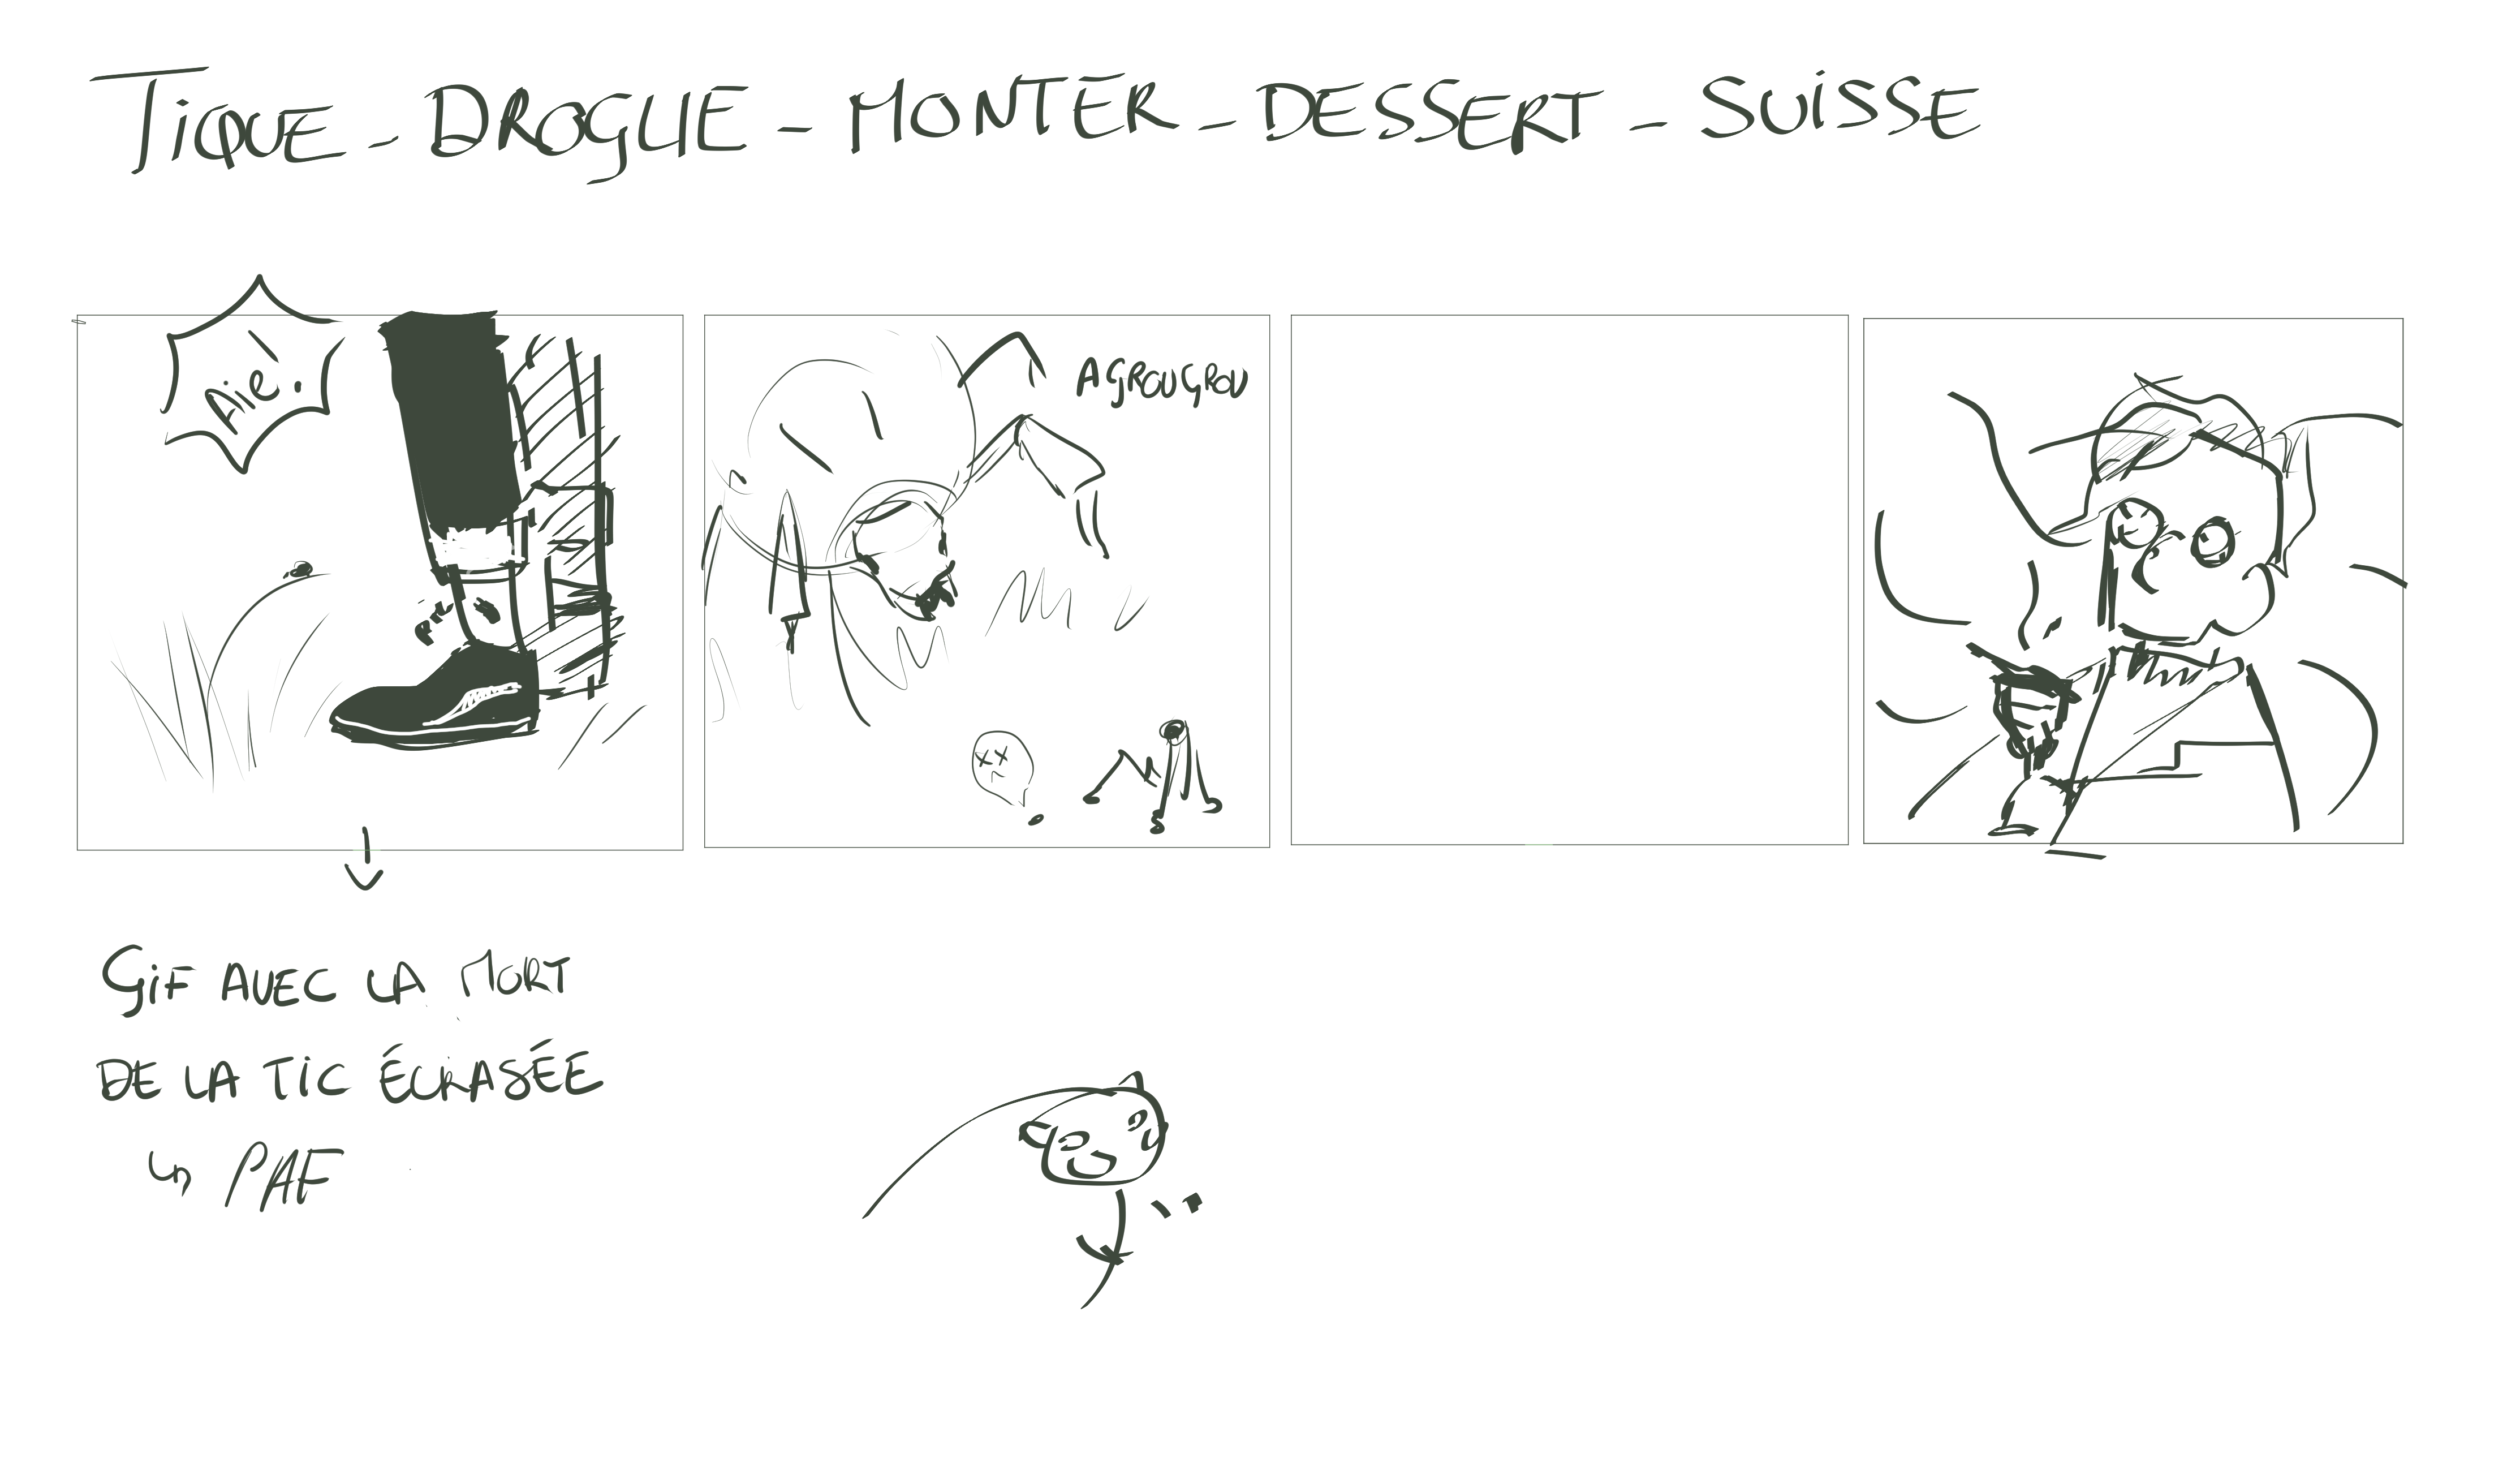 TiQUE - DROGUE - MONTER - DESSERT - SUiSSE
Aïe!
AGROUGROU
GiF AVEC LA MORT
DE LA TiC ÉCRASÉE
↳ PAF